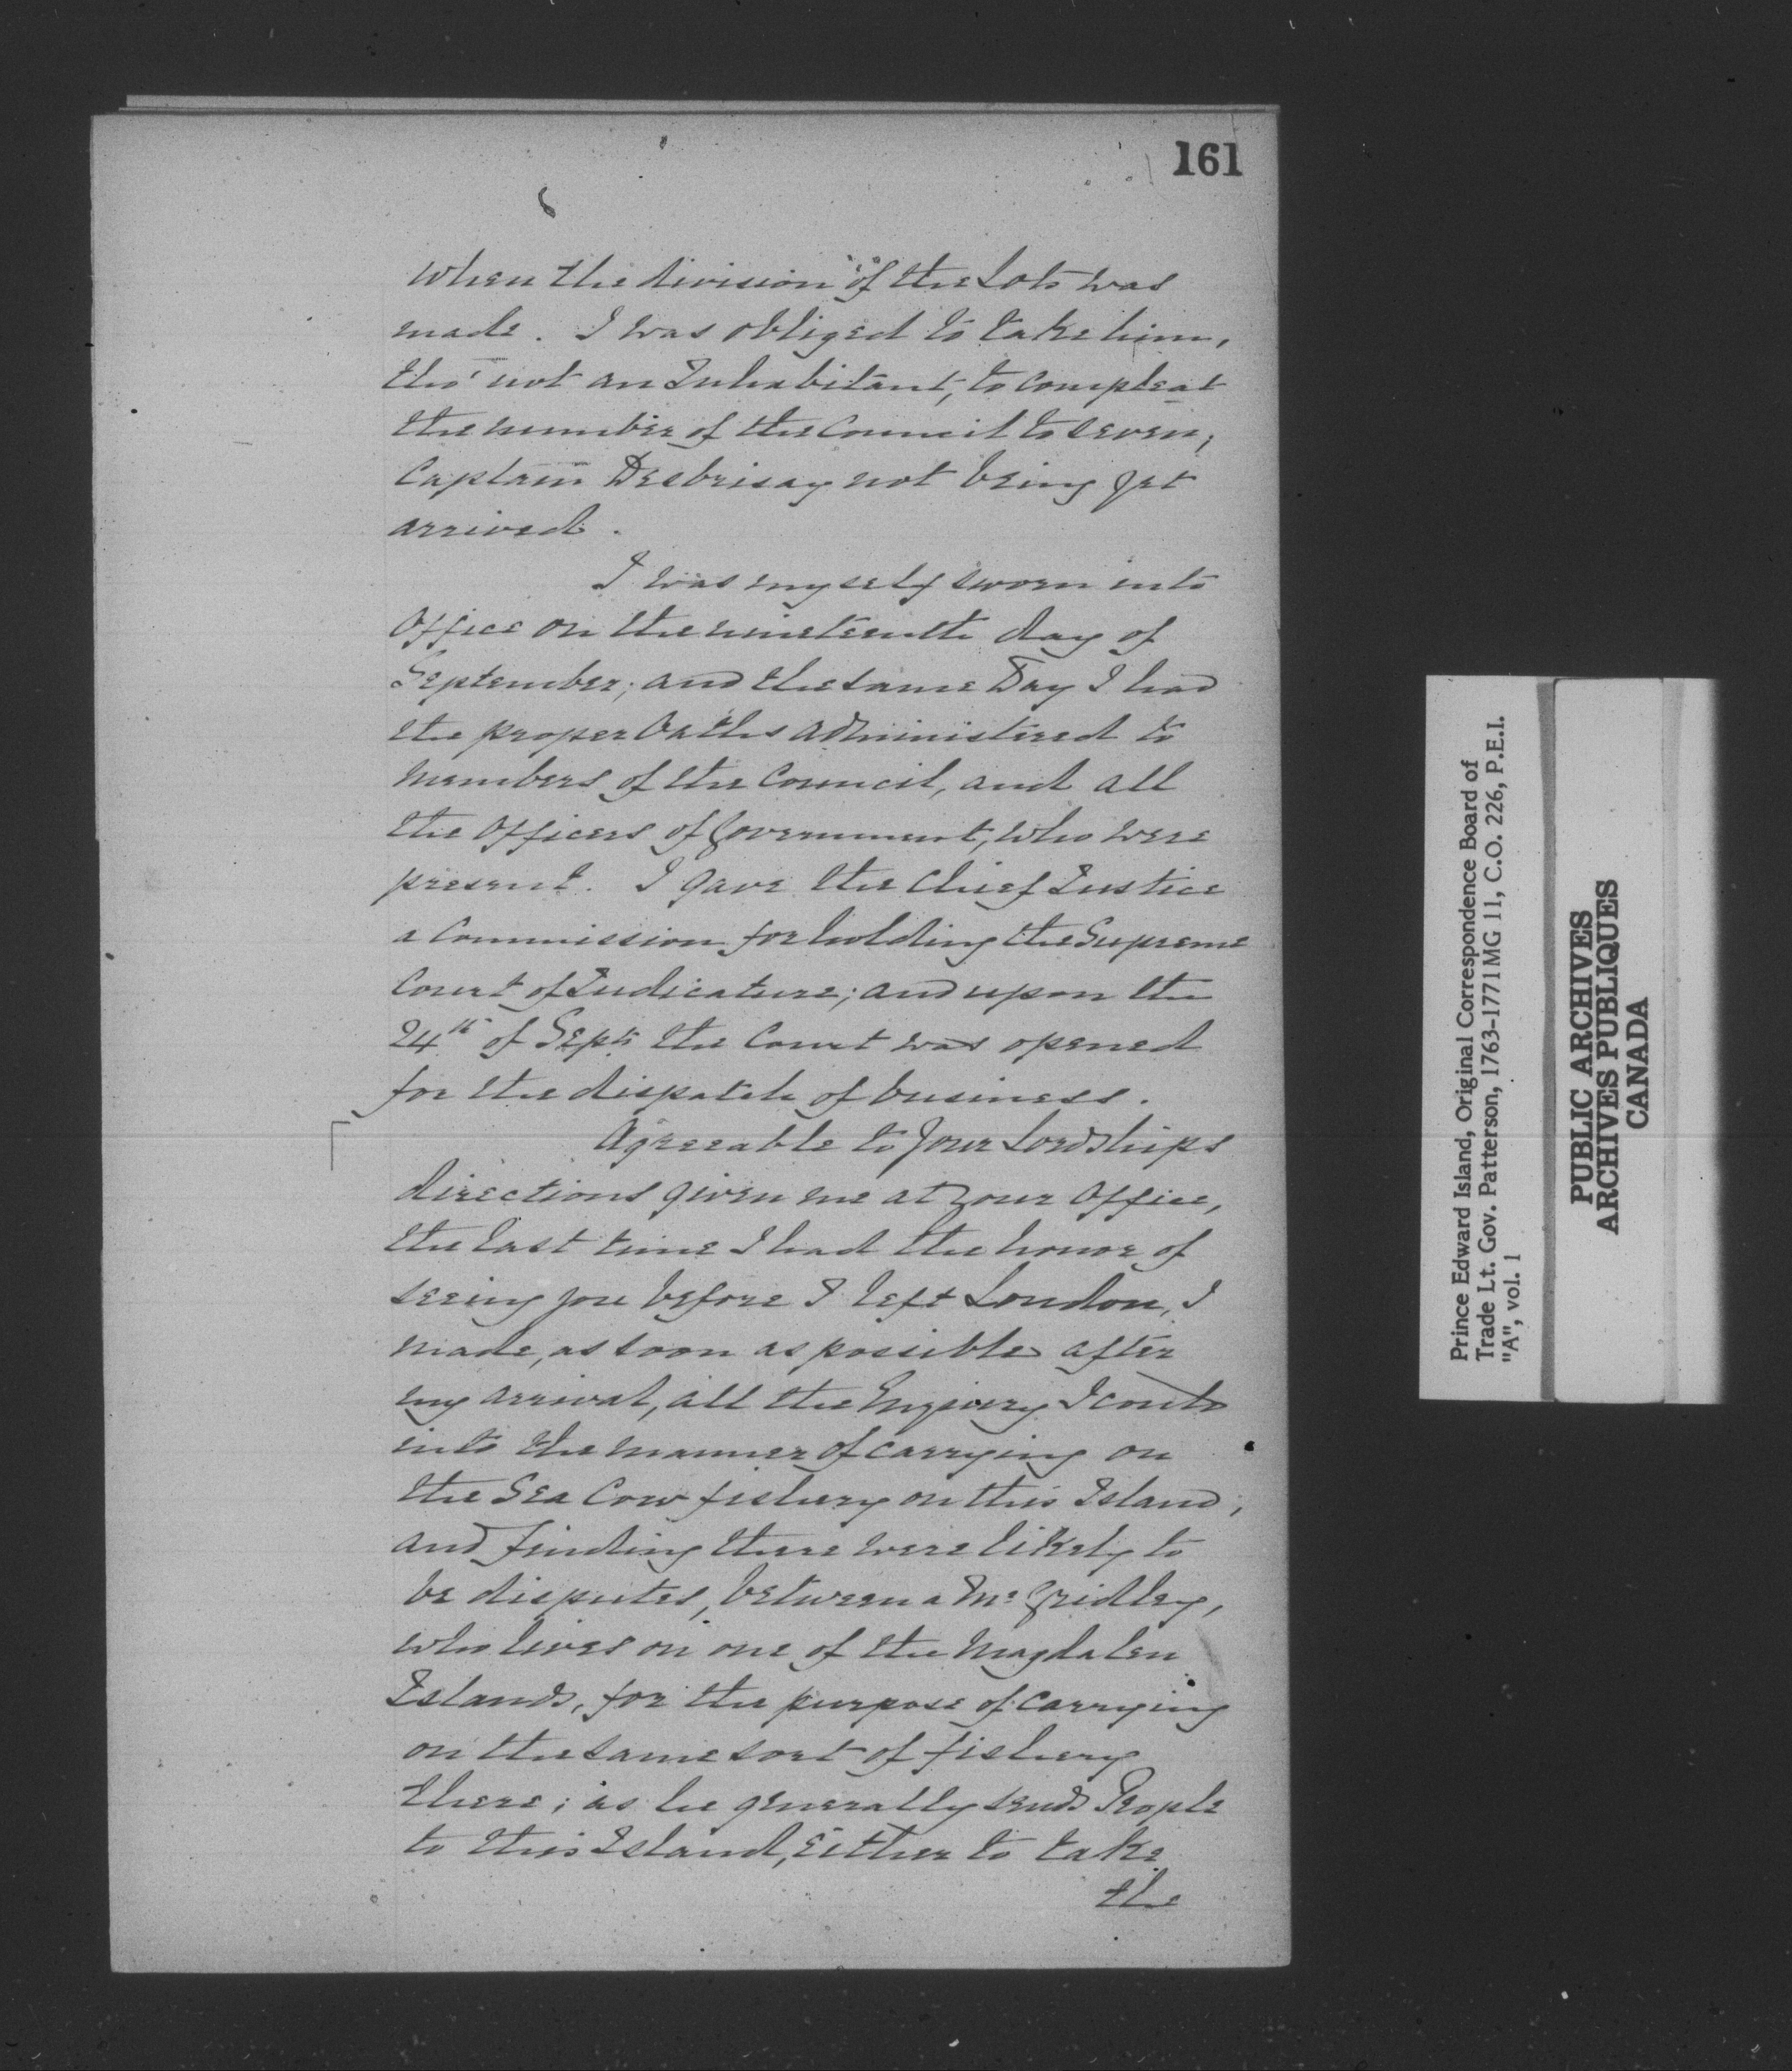 161
6
when the division of the Lots was
made. I was obliged to take him,
tho' not an Inhabitant, to compleat
the number of the Council to seven,
Captain Desbrisay not being yet
arrived.
I was myself sworn into
Office on the nineteenth day of
September; and the same Day I had
the proper Oaths administered to
Members of the Council, and all
the Officers of Government, who were
present. I gave the Chief Justice
a Commission for holding the Supreme
Court of Judicature; and upon the
24th of Septr the Court was opened
for the dispatch of business.
Agreeable to your Lordships
directions given me at your Office,
the last time I had the honor of
seeing you before I left London, I
made, as soon as possible after
my arrival, all the Enquiry I could
into the manner of carrying on
the Sea Cow fishery on this Island;
and finding there were likely to
be disputes, between a Mr Gridley,
who lives on one of the Magdalen
Islands, for the purpose of carrying
on the same sort of fishery
there; as he generally sends People
to this Island, Either to take
the
Prince Edward Island, Original Correspondence Board of
Trade Lt. Gov. Patterson, 1763-1771MG 11, C.O. 226, P.E.I.
"A", vol. 1
PUBLIC ARCHIVES
ARCHIVES PUBLIQUES
CANADA